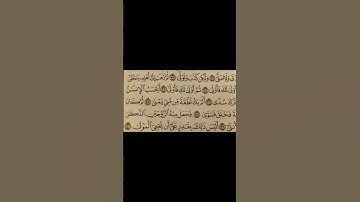 ق ولا صلى ۝ ولكن كذب وتولى ۝ ثم ذهب إلى أهله يتمطى
أولى لك فأولى ۝ ثم أولى لك فأولى ۝ أيحسب الإنسن
يترك سدى ۝ ألم يك نطفة من مني يمنى ۝ ثم كان
ة فخلق فسوى ۝ فجعل منه الزوجين الذكر
نثى ۝ أليس ذلك بقدر على أن يحـى الموتى ۝